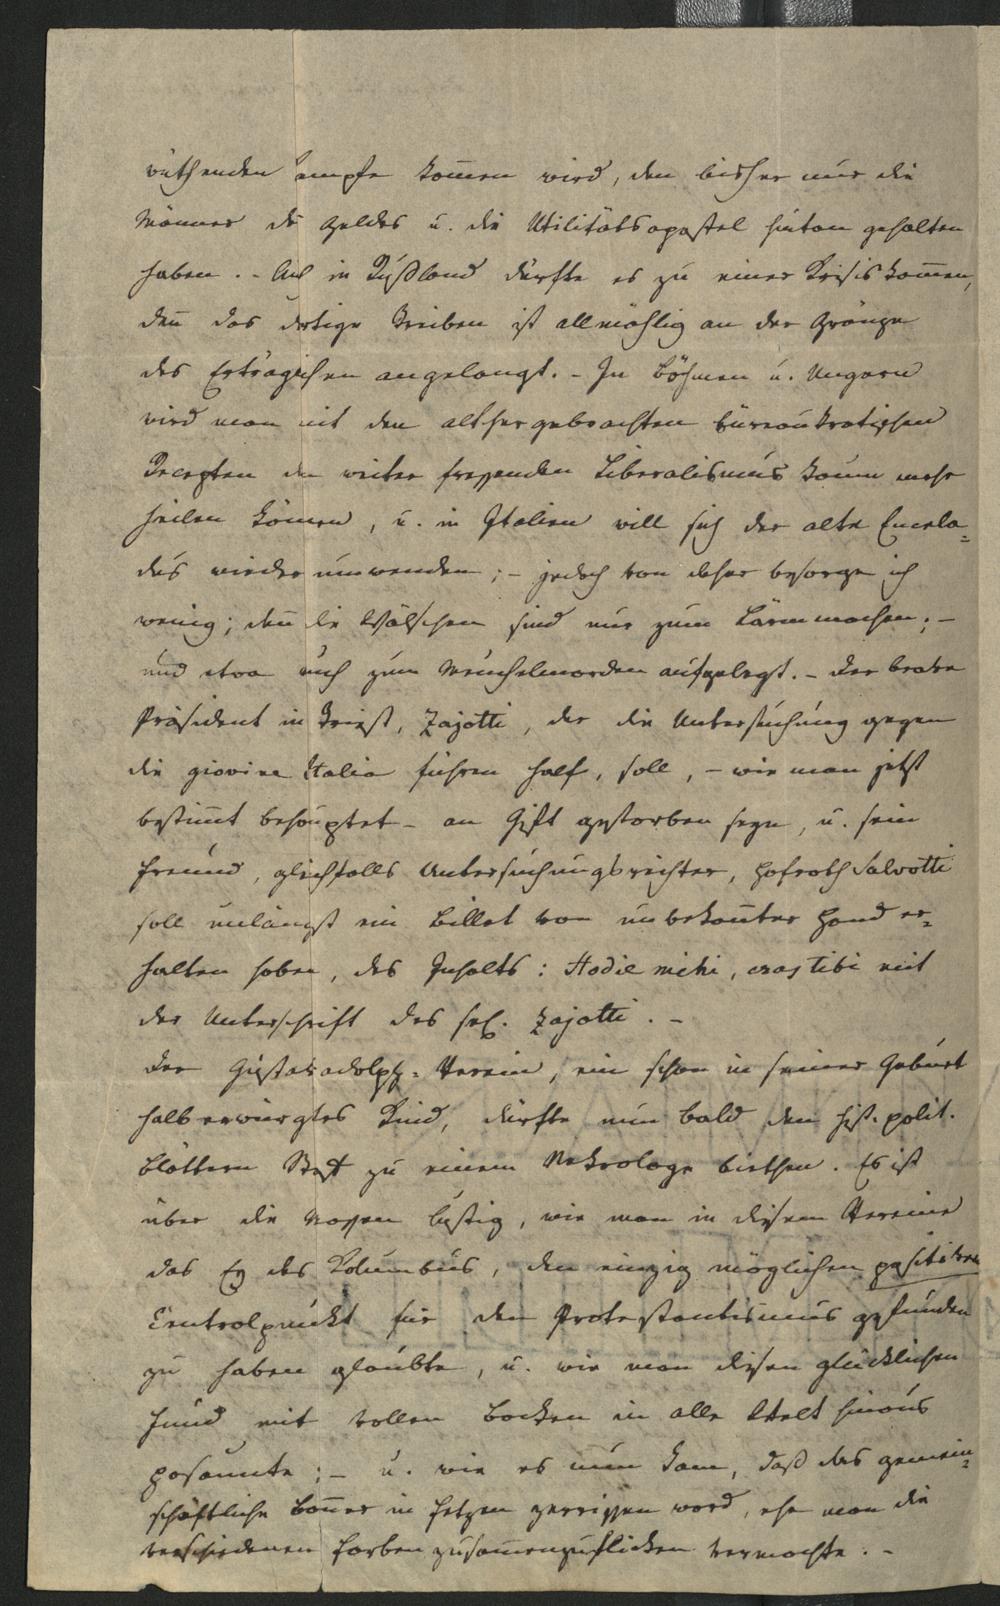 wüthenden Kampfe kom̄en wird, den bisher nur die
Männer des Geldes u. die Utilitätsapostel hintan gehalten
haben. - Auch in Rußland dürfte es zu einer Krisis kom̄en,
den̄ das dortige Treiben ist allmählig an der Gränze
des Erträglichen angelangt. - In Böhmen u. Ungarn
wird man mit den althergebrachten büreaukratischen
Recepten den weiter fressenden Liberalismus kaum mehr
heilen können, u. in Italien will sich der alte Encela=
dus wieder umwenden; - jedoch von daher besorge ich
wenig; den̄ die Wälschen sind nur zum Lärm machen; -
und etwa auch zum Meuchelmorden aufgelegt. - Der brave
Präsident in Triest, Zajotti, der die Untersuchung gegen
die giovine Italia führen half, soll, - wie man jetzt
bestim̄t behauptet - an Gift gestorben seyn, u. sein
Freund, gleichfalls Untersuchungsrichter, Hofrath Salvotti
soll unlängst ein Billet von unbekan̄ter Hand er=
halten haben, des Inhalts: Hodie mihi, cras tibi mit
der Unterschrift des sel. Zajotti. -
Der Gustavadolph=Verein, ein schon in seiner Geburt
halb erwürgtes Kind, dürfte nun bald den hist. polit.
Blättern Stoff zu einem Nekrologe biethen. Es ist
über die Massen lustig, wie man in diesem Vereine
das Ey des Kolumbus, den einzig möglichen positiven
Centralpunkt für den Protestantismus gefunden
zu haben glaubte, u. wie man diesen glücklichen
Fund mit vollen Backen in alle Welt hinaus
posaunte; - u. wie es nun kam, daß das gemein=
schaftliche Ban̄er in Fetzen zerrissen ward, ehe man die
verschiedenen Farben zusammenzuflicken vermochte. -